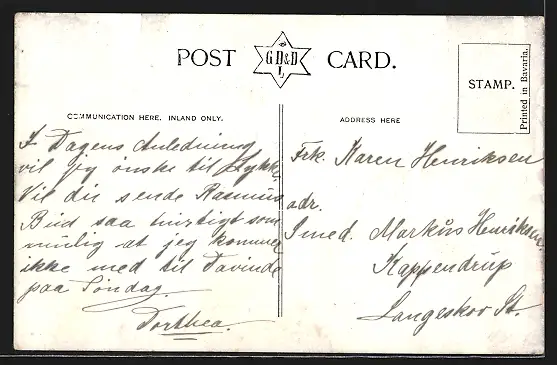 POST CARD.
G D&D
L
STAMP.
Printed in Bavaria.
COMMUNICATION HERE, INLAND ONLY.
ADDRESS HERE
I Dagens Anledning
vil jeg ønske til Lykke.
Vil du sende Rasmus
Bud saa hurtigt som
mulig at jeg kommer
ikke med til Davinde
paa Søndag.
Dorthea.
Frk. Karen Henriksen
adr.
Smed. Markus Henriksen.
Kappendrup
Langeskov St.